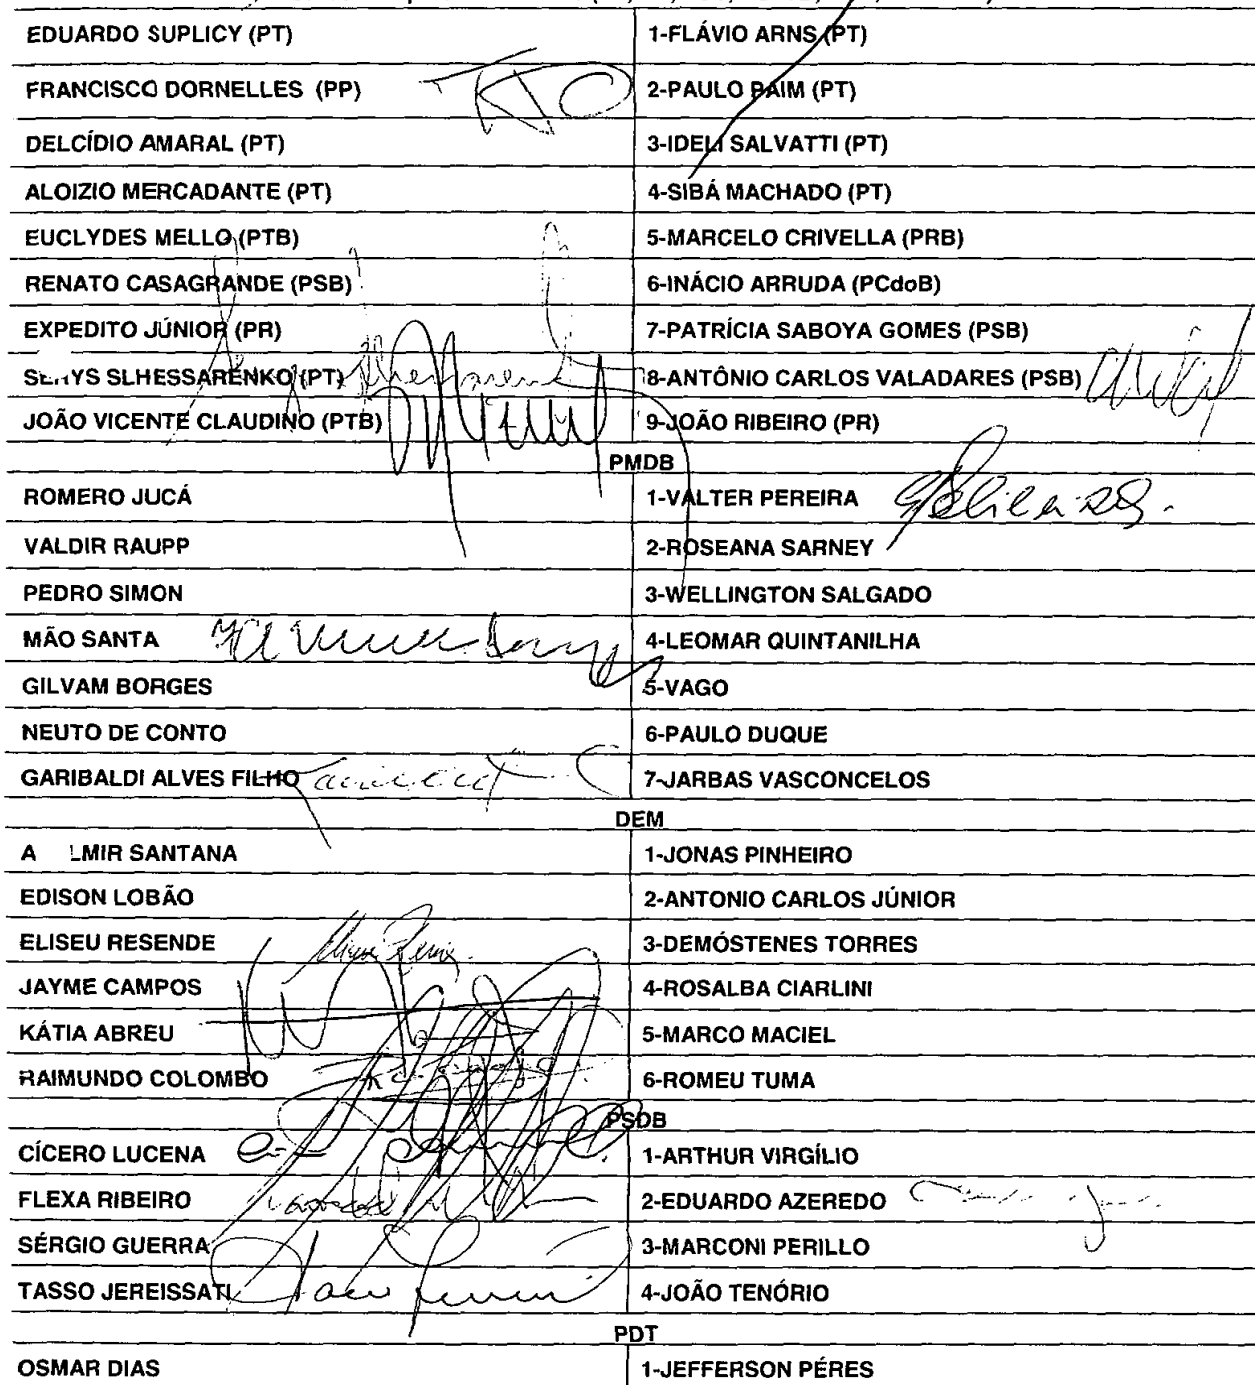 EDUARDO SUPLICY (PT) 1-FLÁVIO ARNS (PT)
FRANCISCO DORNELLES (PP) 2-PAULO PAIM (PT)
DELCÍDIO AMARAL (PT) 3-IDELI SALVATTI (PT)
ALOIZIO MERCADANTE (PT) 4-SIBÁ MACHADO (PT)
EUCLYDES MELLO (PTB) 5-MARCELO CRIVELLA (PRB)
RENATO CASAGRANDE (PSB) 6-INÁCIO ARRUDA (PCdoB)
EXPEDITO JÚNIOR (PR) 7-PATRÍCIA SABOYA GOMES (PSB)
SLHESSARENKO (PT) 8-ANTÔNIO CARLOS VALADARES (PSB)
JOÃO VICENTE CLAUDINO (PTB) 9-JOÃO RIBEIRO (PR)
PMDB
ROMERO JUCÁ 1-VALTER PEREIRA
VALDIR RAUPP 2-ROSEANA SARNEY
PEDRO SIMON 3-WELLINGTON SALGADO
MÃO SANTA 4-LEOMAR QUINTANILHA
GILVAM BORGES 5-VAGO
NEUTO DE CONTO 6-PAULO DUQUE
GARIBALDI ALVES FILHO 7-JARBAS VASCONCELOS
DEM
A LMIR SANTANA 1-JONAS PINHEIRO
EDISON LOBÃO 2-ANTONIO CARLOS JÚNIOR
ELISEU RESENDE 3-DEMÓSTENES TORRES
JAYME CAMPOS 4-ROSALBA CIARLINI
KÁTIA ABREU 5-MARCO MACIEL
RAIMUNDO COLOMBO 6-ROMEU TUMA
PSDB
CÍCERO LUCENA 1-ARTHUR VIRGÍLIO
FLEXA RIBEIRO 2-EDUARDO AZEREDO
SÉRGIO GUERRA 3-MARCONI PERILLO
TASSO JEREISSATI 4-JOÃO TENÓRIO
PDT
OSMAR DIAS 1-JEFFERSON PÉRES